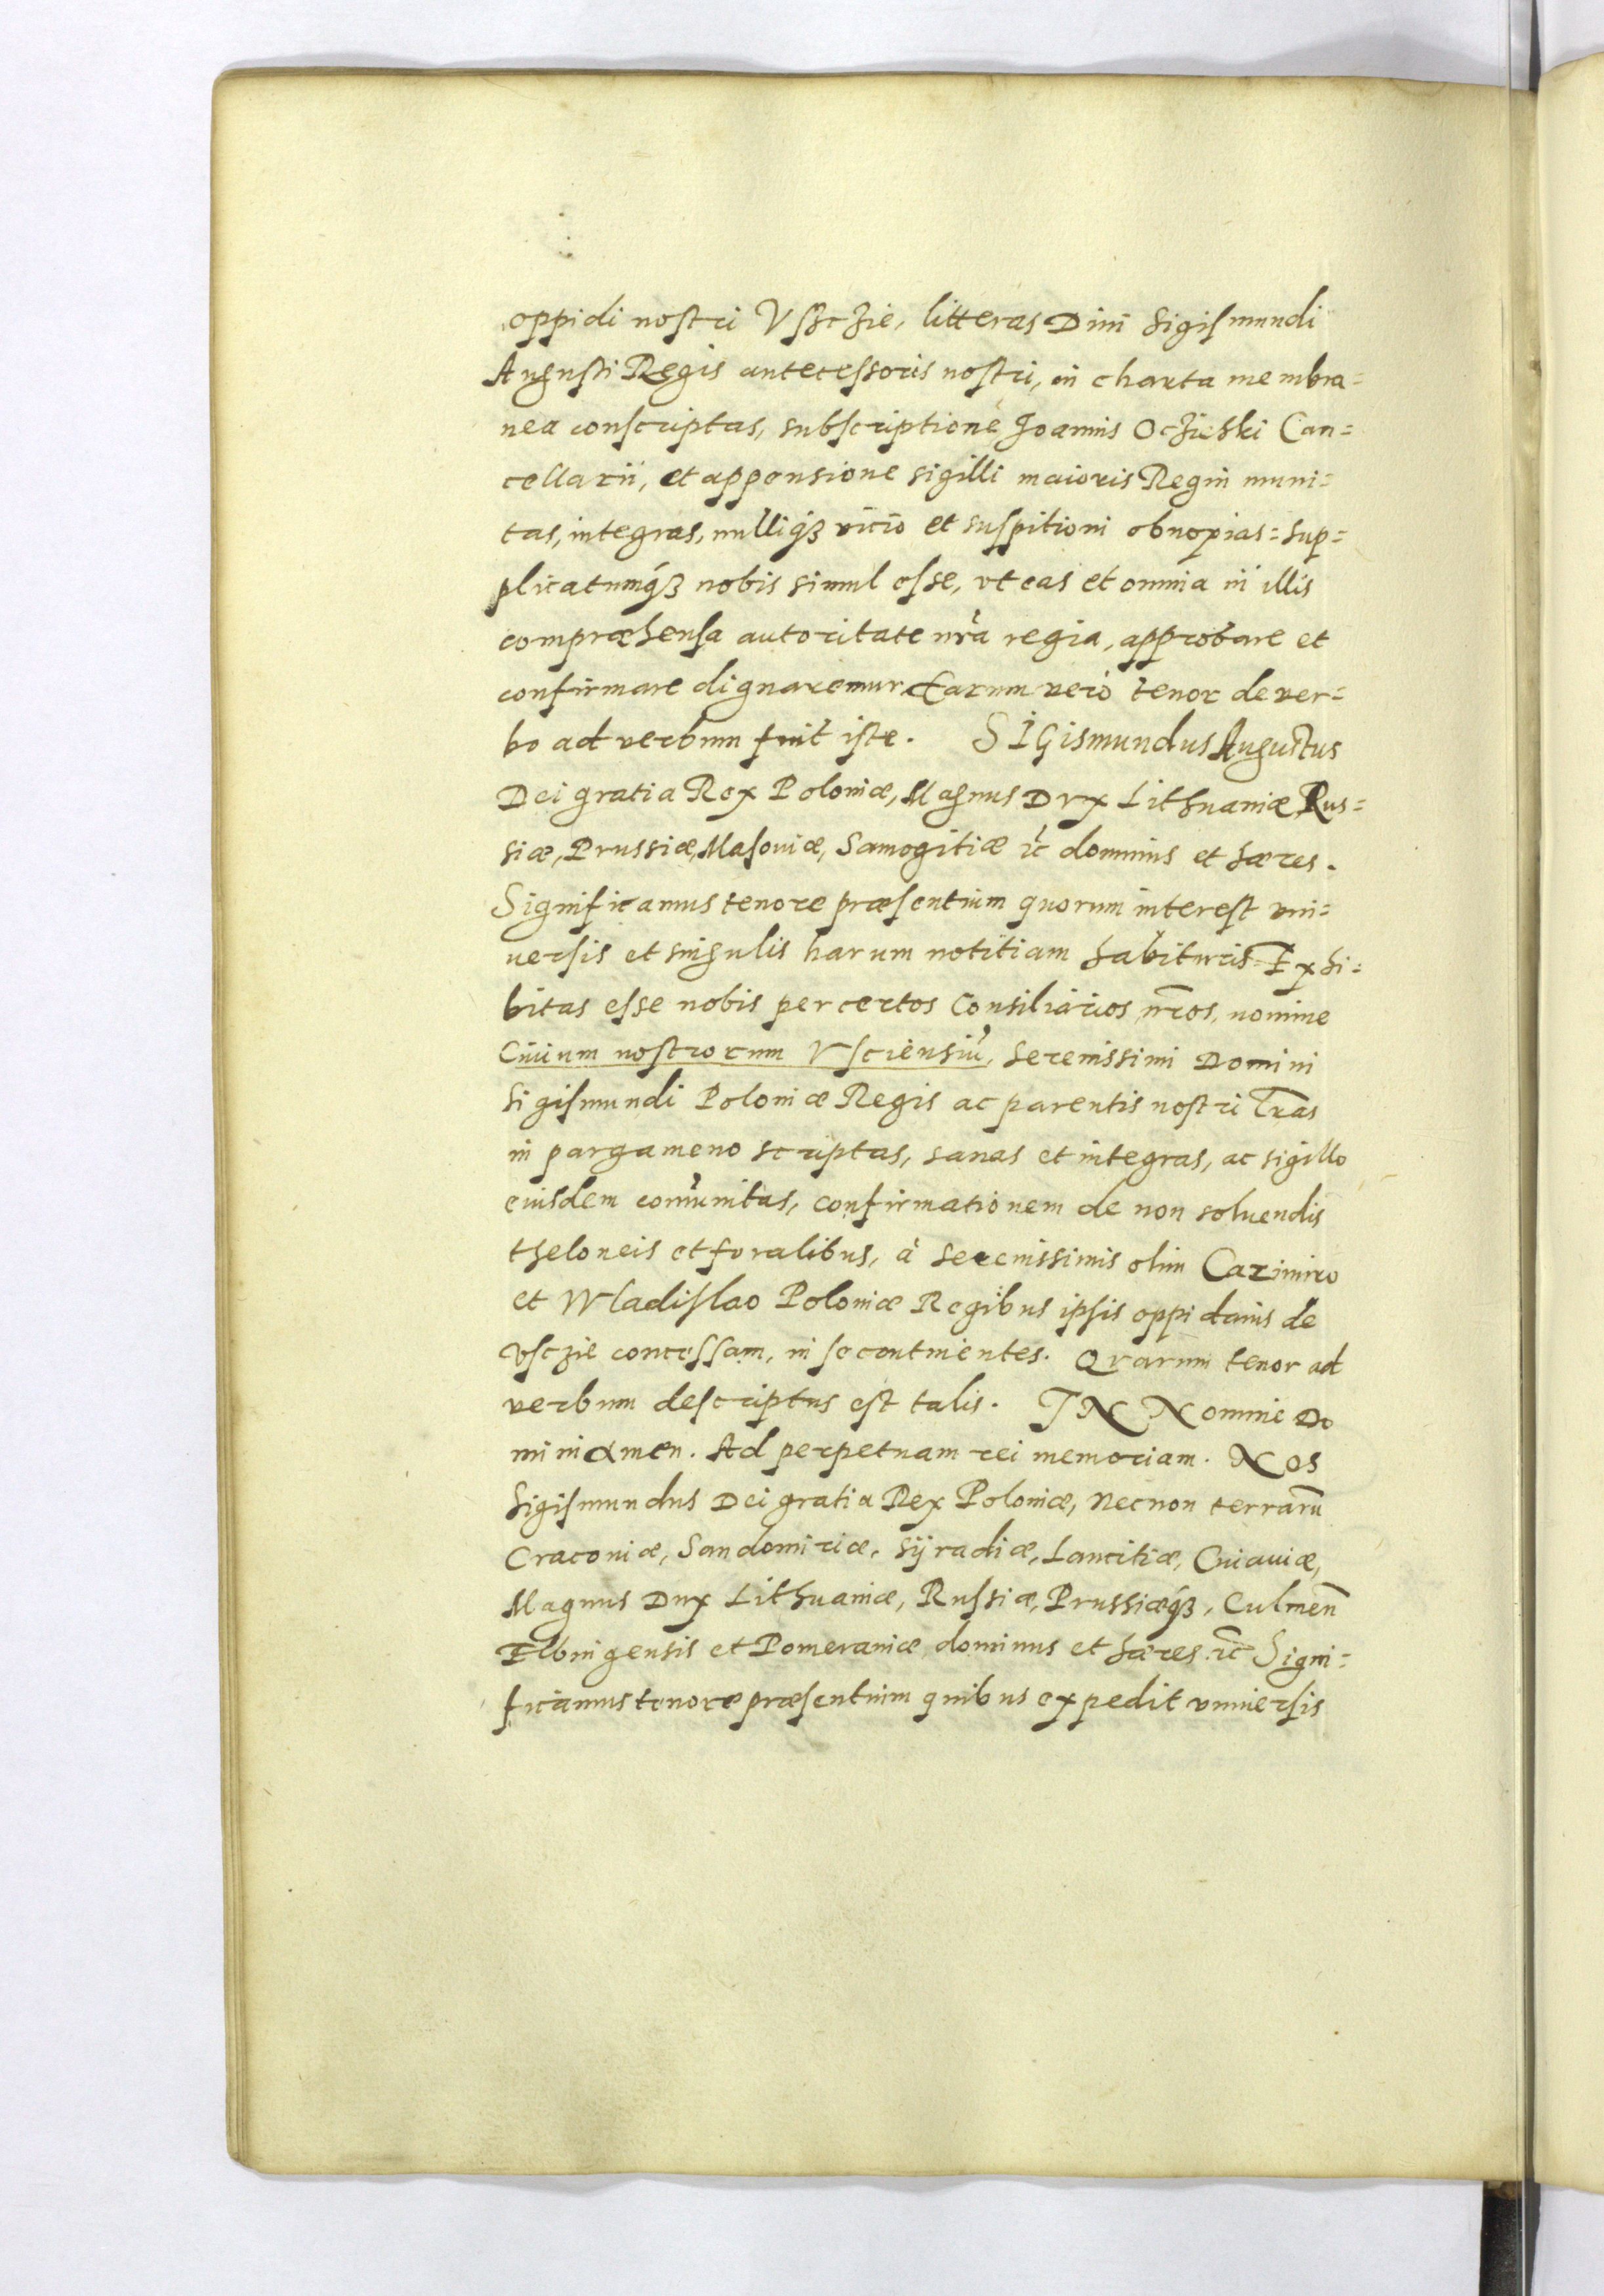 oppidi nostri Vszczie, litteras Diui Sigismundi
Augusti Regis antecessoris nostri, in charta membra=
nea conscriptas, subscriptione Joannis Oczieski Can=
cellarii, et appensione sigilli maioris Regni muni=
tas, integras, nulliq́ȝ vicio et suspitioni obnoxias: Sup=
plicatumq́ȝ nobis simul esse, vt eas et omnia in illis
compræhensa autoritate nr̃a regia, approbare et
confirmare dignaremur. Earum vero tenor de ver=
bo ad verbum fuit iste. SIGismundus Augustus
Dei gratia Rex Poloniæ, Magnus Dvx Lithuaniæ, Rus=
siæ, Prussiæ, Masouiæ, Samogitiæ ꝛc̃ dominus et hæres.
Significamus tenore præsentium quorum interest vni=
uersis et singulis harum notitiam habituris. Exhi=
bitas esse nobis per certos Consiliarios nr̃os, nomine
Ciuium nostrorum Vsciensiũ, Serenissimi Domini
Sigismundi Poloniæ Regis ac parentis nostri lr̃as
in pargameno scriptas, sanas et integras, ac sigillo
eiusdem com̃unitas, confirmationem de non soluendis
theloneis et foralibus, à Serenissimis olim Cazimiro
et Wladislao Poloniæ Regibus ipsis oppidanis de
Vsczie concessam, in se continentes. Qvarum tenor ad
verbum descriptus est talis. IN Nomine Do
mini amen. Ad perpetuam rei memoriam. Nos
Sigismundus Dei gratia Rex Poloniæ, necnon terrarũ
Cracouiæ, Sandomiriæ, Syradiæ, Lancitiæ, Cuiauiæ,
Magnus Dux Lithuaniæ, Russiæ, Prussiæq́ȝ, Culmen̄
Elbingensis et Pomeraniæ dominus et hæres ꝛc̃ Signi=
ficamus tenore præsentium quibus expedit vniuersis